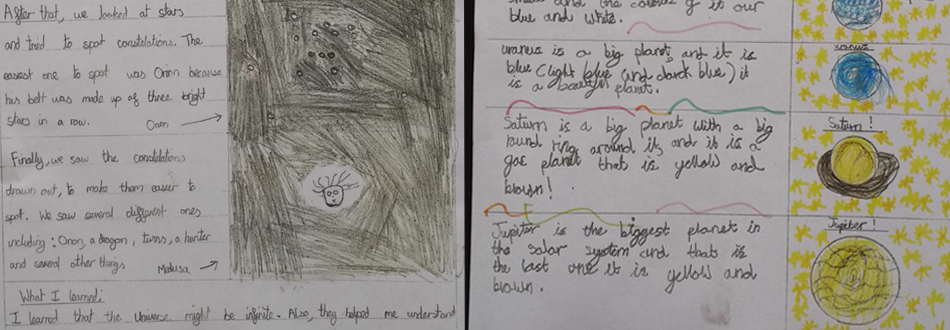 After that, we looked at stars
and tried to spot constelations. The
easiest one to spot was Orion because
his belt was made up of three bright
stars in a row.
Orion
Finally, we saw the constelations
drawn out, to make them easier to
spot. We saw several different ones
including: Orion, a dragon, twins, a hunter
and several other things
Medusa
What I learned:
I learned that the Universe might be infinite. Also, they helped me understand
and the colours of it our
blue and white.
uranus is a big planet and it is
blue (light blue and dark blue) it
is a beautiful planet.
uranus
Saturn is a big planet with a big
round ring around it, and it is a
gas planet that is yellow and
brown!
Saturn!
Jupiter is the biggest planet in
the solar system and that is
the last one it is yellow and
brown.
Jupiter!